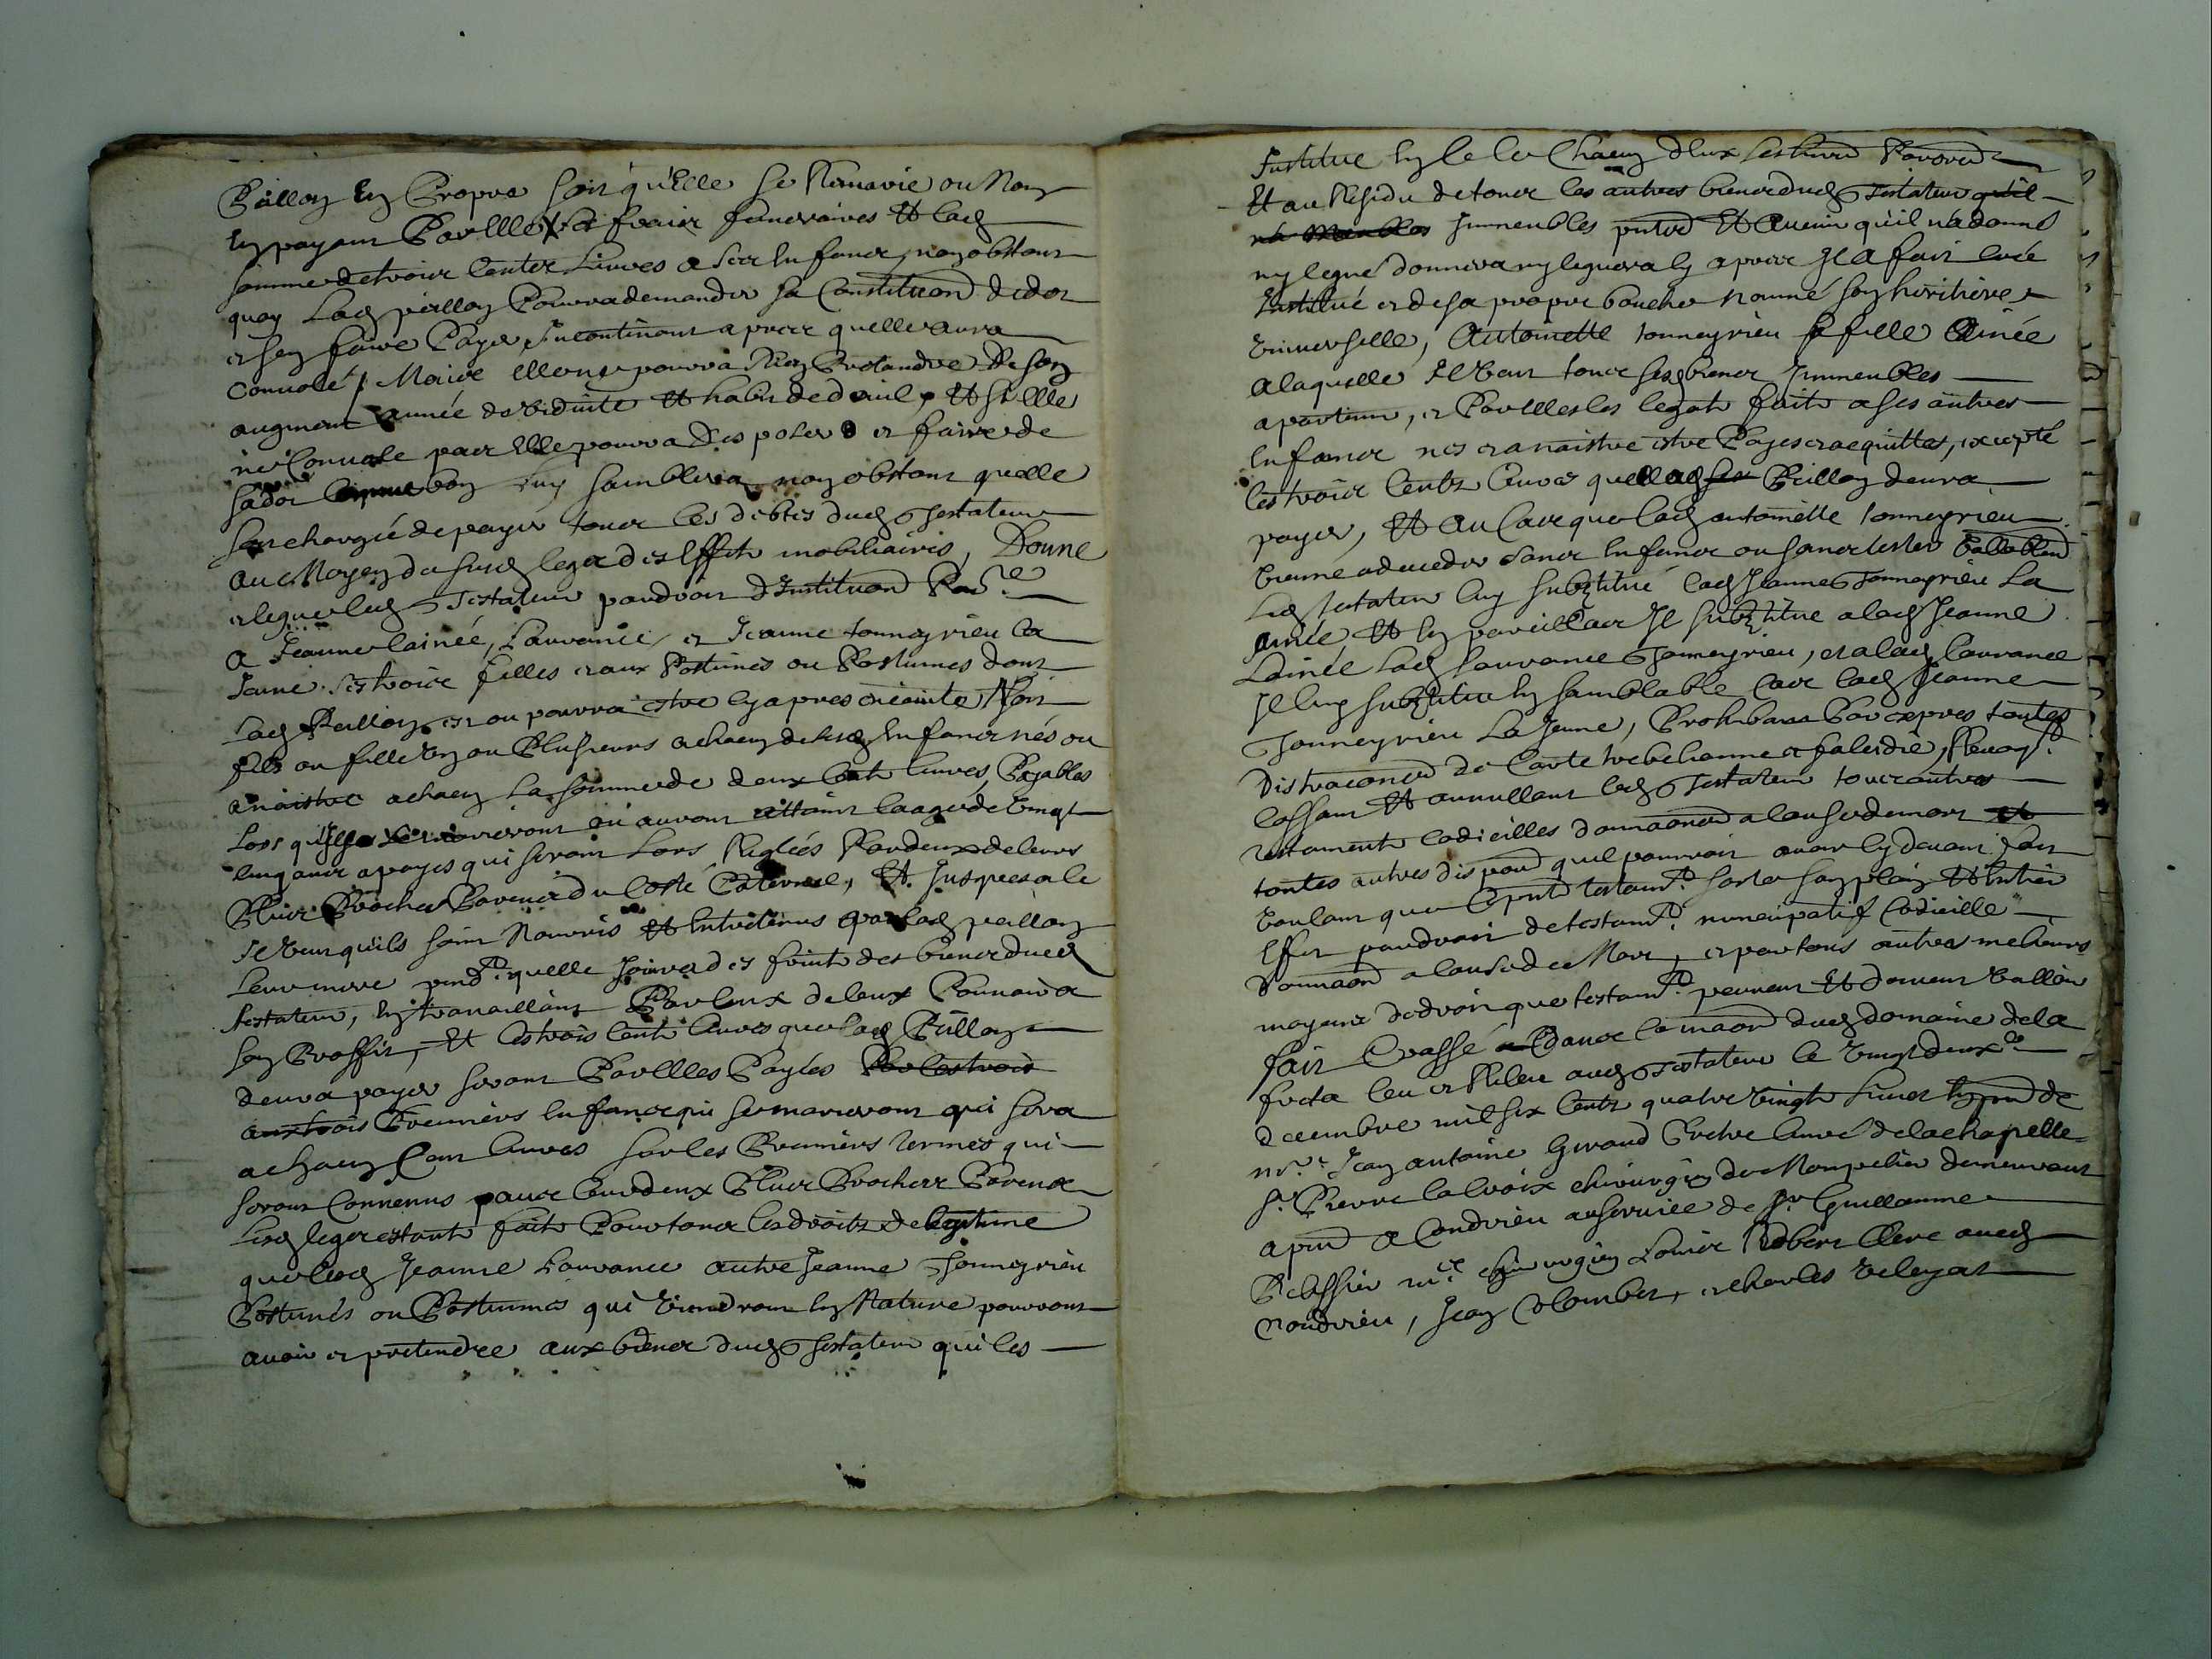 Paillon en propre soit qu'elle se remarie ou non
en payant par elle ses fraix funeraires et lad
somme de trois centz livres a ses enfans, nonobstant
quoy lad paillon pourra demander sa constituon de dot
et sen faire payer incontinant apres quelle aura
convolé, mais elle ne pourra rien pretandre de son
augment année de viduité et habit de deuil, et si elle
ne convole pas elle pourra disposer et faire de
sa dot comme bon luy samblera nonobstant quelle
soit chargée de payer tous les debtes dud testateur
au moyen du susd legat des effets mobiliaires, Donne
et legue led testateur par droit d'instituon
a Jeanne lainée, Laurance, et Jeanne tonneyrieu la
Jeune ses trois filles et aux postumes ou postumes dont
lad paillon est ou pourra estre cy apres enceinte soit
fils ou fille un ou plusieurs a chacun desd enfans nés ou
a naistre a chacun la somme de deux cents livres payables
lors quils se marieront ou auront attaint laage de vingt
cinq ans a payes qui seront lors reglées par deux de leurs
plus proches parens du costé paternel, et jusques a ce
Il veut quils soint nourris et entretenus par lad paillon
leur mere pend.t quelle jouira des fruits des biens dud
testateur, en travaillant par eux de leur pouvoir a
son proffit, et les trois cents livres que lad paillon
devra payer seront par elles payées par les trois
aux trois premiers enfans qui se marieront qui sera
a chacun cent livres sur les premiers termes qui
seront convenus par leurs deux plus proches parens
lesd legats estants faits pour tous les droits de legitime
que lesd Jeanne Laurance autre Jeanne Tonneyrieu
Postumes ou Postumes qui viendront en nature pourront
avoir et pretendre aux biens dud testateur qui les
Institue en ce les chacun d'eux ses heritiers particuliers
Et au residu de tous les autres biens dud testateur qu'il
na meubles Immeubles pntz et avenir qu'il na donné
ny legué donnera ny leguera cy apres Il a fait créé
Institué et de sa propre bouche nommé son heritiere
universelle, Antoinette tonneyrieu sa fille Ainée
a laquelle Il veut tous sesd biens Immeubles
apartenir, et par elle les legats faits a ses autres
enfans nés et a naistre estre payes et acquittes, excepté
les trois cents livres que lad Paillon devra
payer, Et au cas que lad antoinette tonneyrieu
vienne a deceder sans enfans ou sans tester
Led testateur luy substitue lad Jeanne Tonneyrieu La
ainée et en pareil cas Il substitue a lad Jeanne
Lainée lad Laurance Tonneyrieu, et a lad Laurance
Il luy substitue en samblable cas lad Jeanne
Tonneyrieu La Jeune, Prohibant par expres toutes
Distractions de carte trebelianne et falcidie, Revoq.t
cassant et annullant led Testateur tous autres
testaments codicilles donnaons a cause de mort et
toutes autres dispoons quil pourroit avoir cy devant fait
voulant que le pnt testam.t sorte son plain et entier
effet par droit de testam.t nuncupatif codicille
Donnaon a cause de Mort, et par tous autres meilleurs
moyens de droit que testam.t peuvent et doivent valloir
fait et passé dans la maon dud domaine de la
leu et releu aud Testateur le vingt deux.e
decembre mil six cents quatre vingts en pnce de
m.re Jean antoine Giraud Prebtre curé de la chapelle
s.r Pierre lacroix chirurgien de Monpelier demeurant
a pnt a Condrieu au service de s.r Guillaume
Pelissier m.e chirurgien Louis Robert clerc aud
Condrieu, Jean Colombet, et charles veleyat